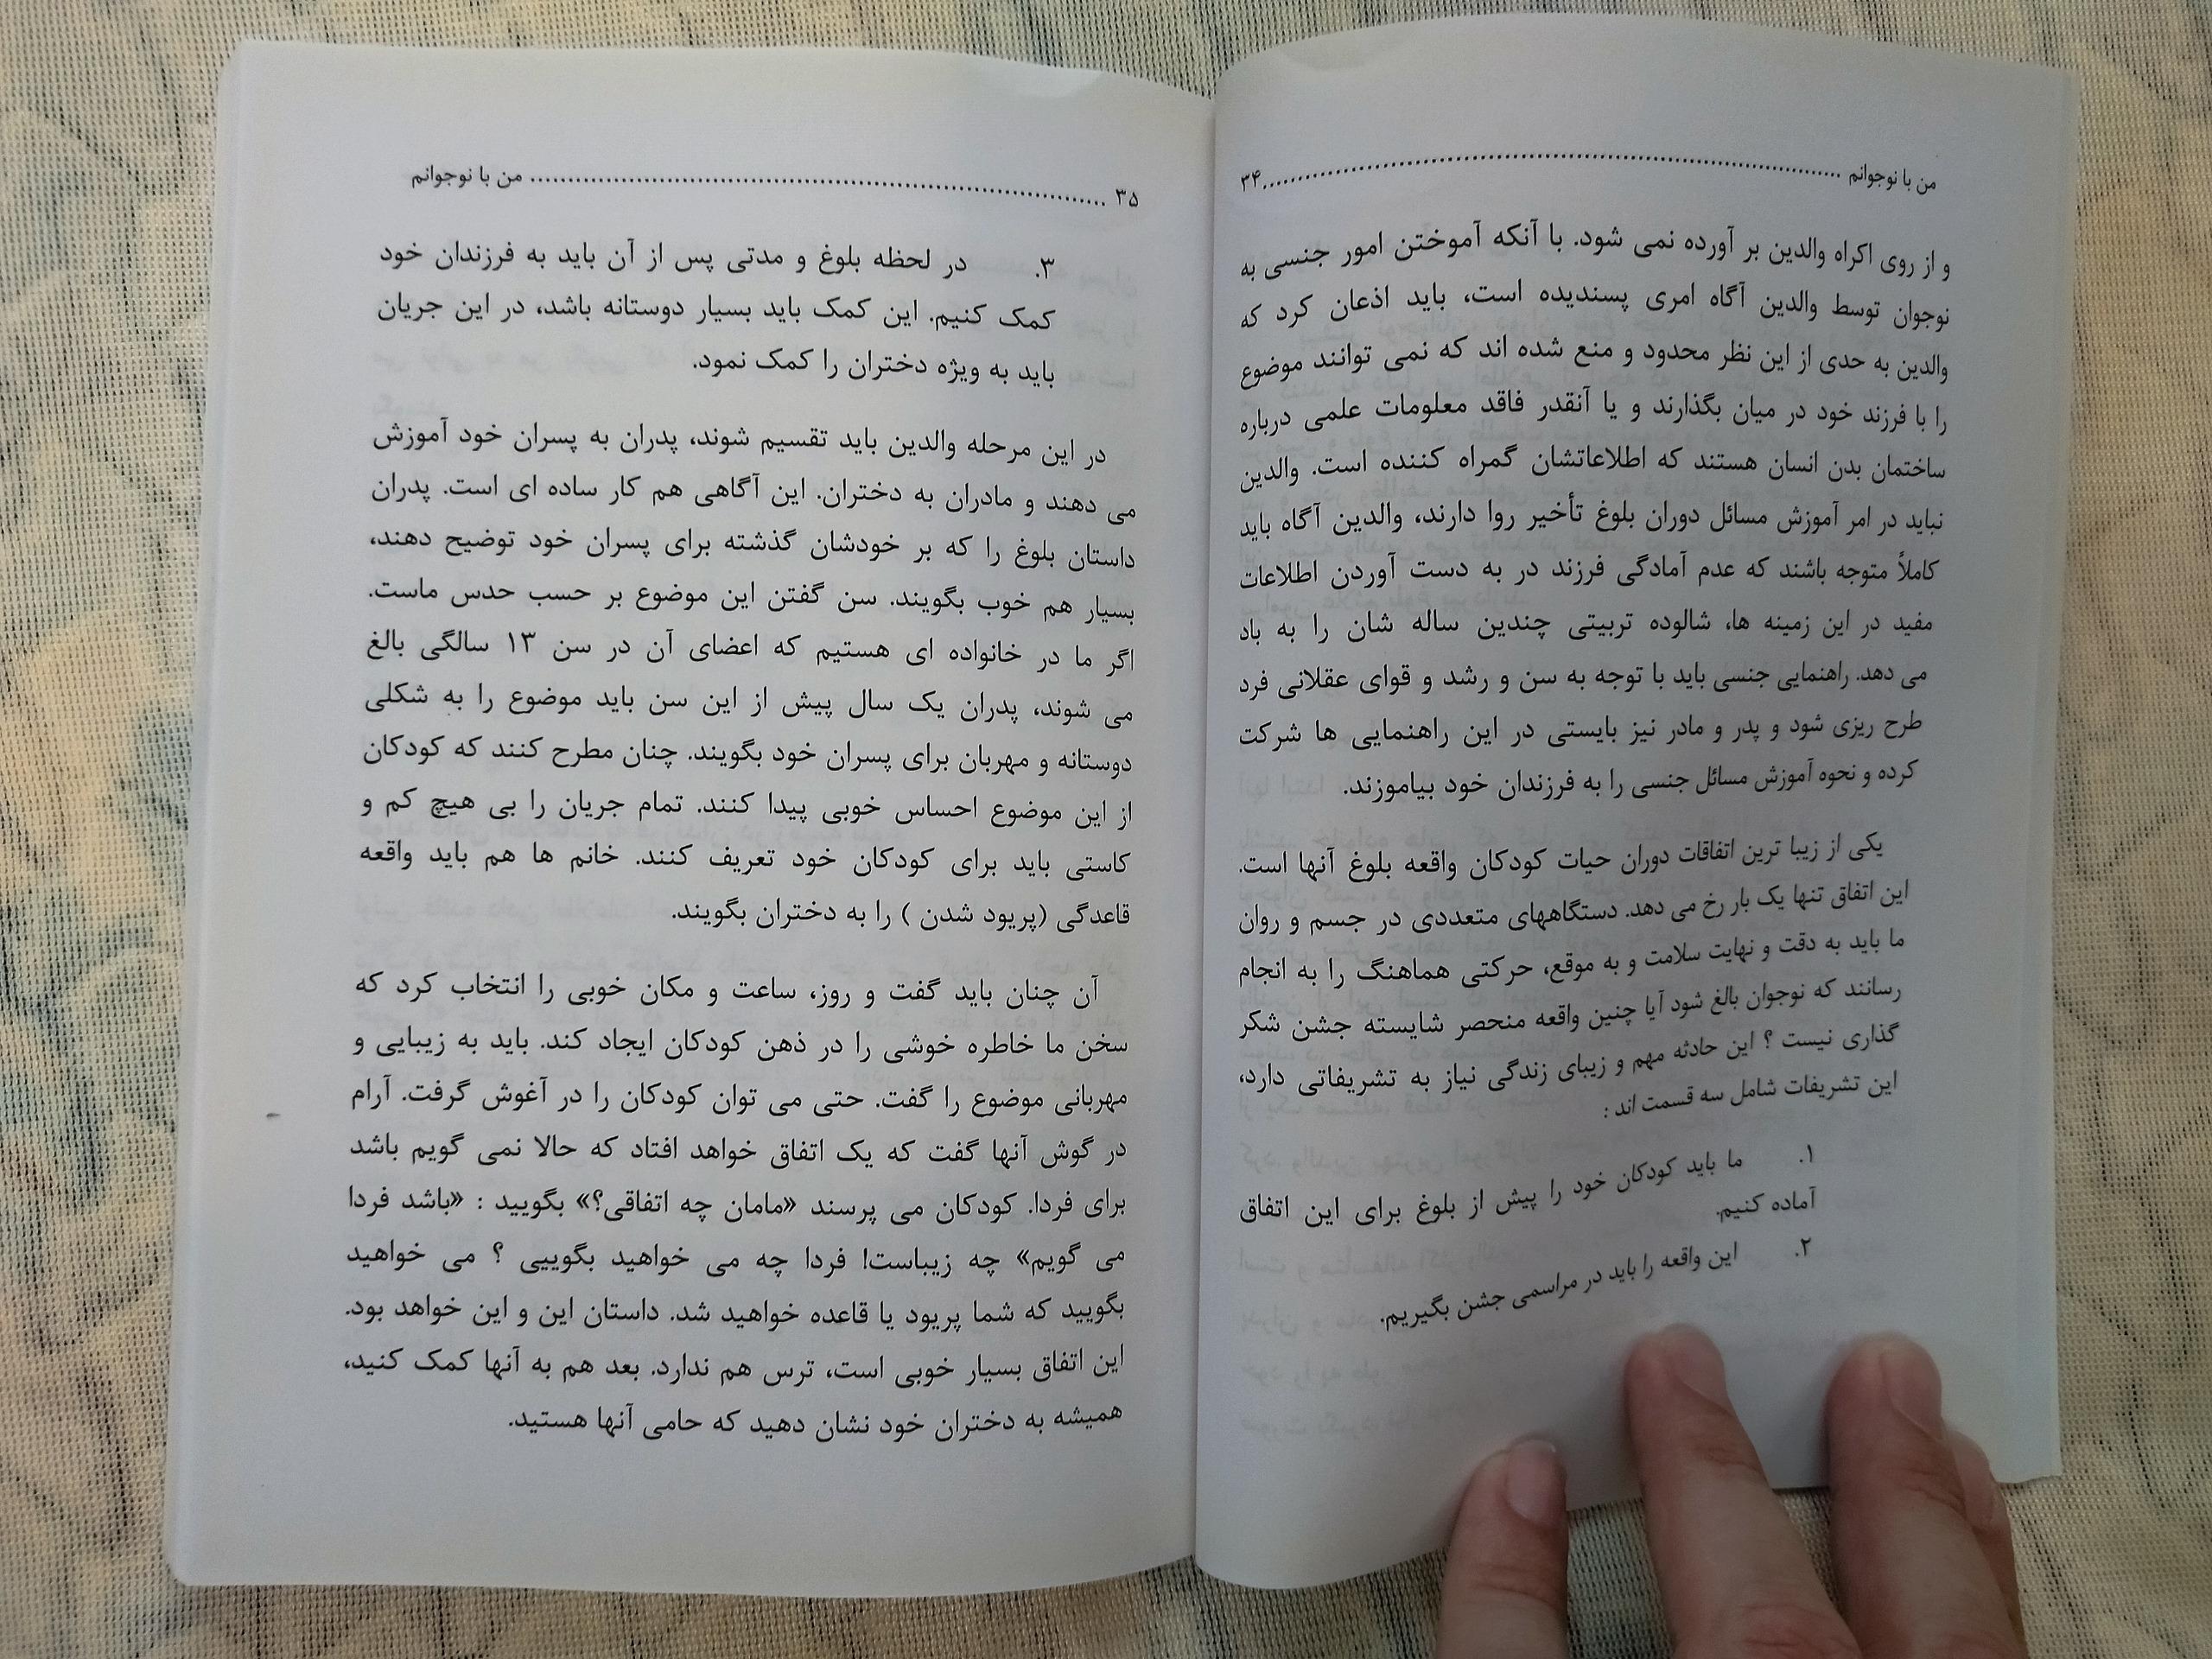 من با نوجوانم ........ ۳۴
و از روی اکراه والدین بر آورده نمی شود. با آنکه آموختن امور جنسی به
نوجوان توسط والدین آگاه امری پسندیده است، باید اذعان کرد که
والدین به حدی از این نظر محدود و منع شده اند که نمی توانند موضوع
را با فرزند خود در میان بگذارند و یا آنقدر فاقد معلومات علمی درباره
ساختمان بدن انسان هستند که اطلاعاتشان گمراه کننده است. والدین
نباید در امر آموزش مسائل دوران بلوغ تأخیر روا دارند، والدین آگاه باید
کاملاً متوجه باشند که عدم آمادگی فرزند در به دست آوردن اطلاعات
مفید در این زمینه ها، شالوده تربیتی چندین ساله شان را به باد
می دهد. راهنمایی جنسی باید با توجه به سن و رشد و قوای عقلانی فرد
طرح ریزی شود و پدر و مادر نیز بایستی در این راهنمایی ها شرکت
کرده و نحوه آموزش مسائل جنسی را به فرزندان خود بیاموزند.
یکی از زیبا ترین اتفاقات دوران حیات کودکان واقعه بلوغ آنها است.
این اتفاق تنها یک بار رخ می دهد. دستگاههای متعددی در جسم و روان
ما باید به دقت و نهایت سلامت و به موقع، حرکتی هماهنگ را به انجام
رسانند که نوجوان بالغ شود آیا چنین واقعه منحصر شایسته جشن شکر
گذاری نیست ؟ این حادثه مهم و زیبای زندگی نیاز به تشریفاتی دارد،
این تشریفات شامل سه قسمت اند :
۱. ما باید کودکان خود را پیش از بلوغ برای این اتفاق
آماده کنیم.
۲. این واقعه را باید در مراسمی جشن بگیریم.
۳۵ ........ من با نوجوانم
۳. در لحظه بلوغ و مدتی پس از آن باید به فرزندان خود
کمک کنیم. این کمک باید بسیار دوستانه باشد، در این جریان
باید به ویژه دختران را کمک نمود.
در این مرحله والدین باید تقسیم شوند، پدران به پسران خود آموزش
می دهند و مادران به دختران. این آگاهی هم کار ساده ای است. پدران
داستان بلوغ را که بر خودشان گذشته برای پسران خود توضیح دهند،
بسیار هم خوب بگویند. سن گفتن این موضوع بر حسب حدس ماست.
اگر ما در خانواده ای هستیم که اعضای آن در سن ۱۳ سالگی بالغ
می شوند، پدران یک سال پیش از این سن باید موضوع را به شکلی
دوستانه و مهربان برای پسران خود بگویند. چنان مطرح کنند که کودکان
از این موضوع احساس خوبی پیدا کنند. تمام جریان را بی هیچ کم و
کاستی باید برای کودکان خود تعریف کنند. خانم ها هم باید واقعه
قاعدگی (پریود شدن ) را به دختران بگویند.
آن چنان باید گفت و روز، ساعت و مکان خوبی را انتخاب کرد که
سخن ما خاطره خوشی را در ذهن کودکان ایجاد کند. باید به زیبایی و
مهربانی موضوع را گفت. حتی می توان کودکان را در آغوش گرفت. آرام
در گوش آنها گفت که یک اتفاق خواهد افتاد که حالا نمی گویم باشد
برای فردا. کودکان می پرسند «مامان چه اتفاقی؟» بگویید : «باشد فردا
می گویم» چه زیباست! فردا چه می خواهید بگوییی ؟ می خواهید
بگویید که شما پریود یا قاعده خواهید شد. داستان این و این خواهد بود.
این اتفاق بسیار خوبی است، ترس هم ندارد. بعد هم به آنها کمک کنید،
همیشه به دختران خود نشان دهید که حامی آنها هستید.